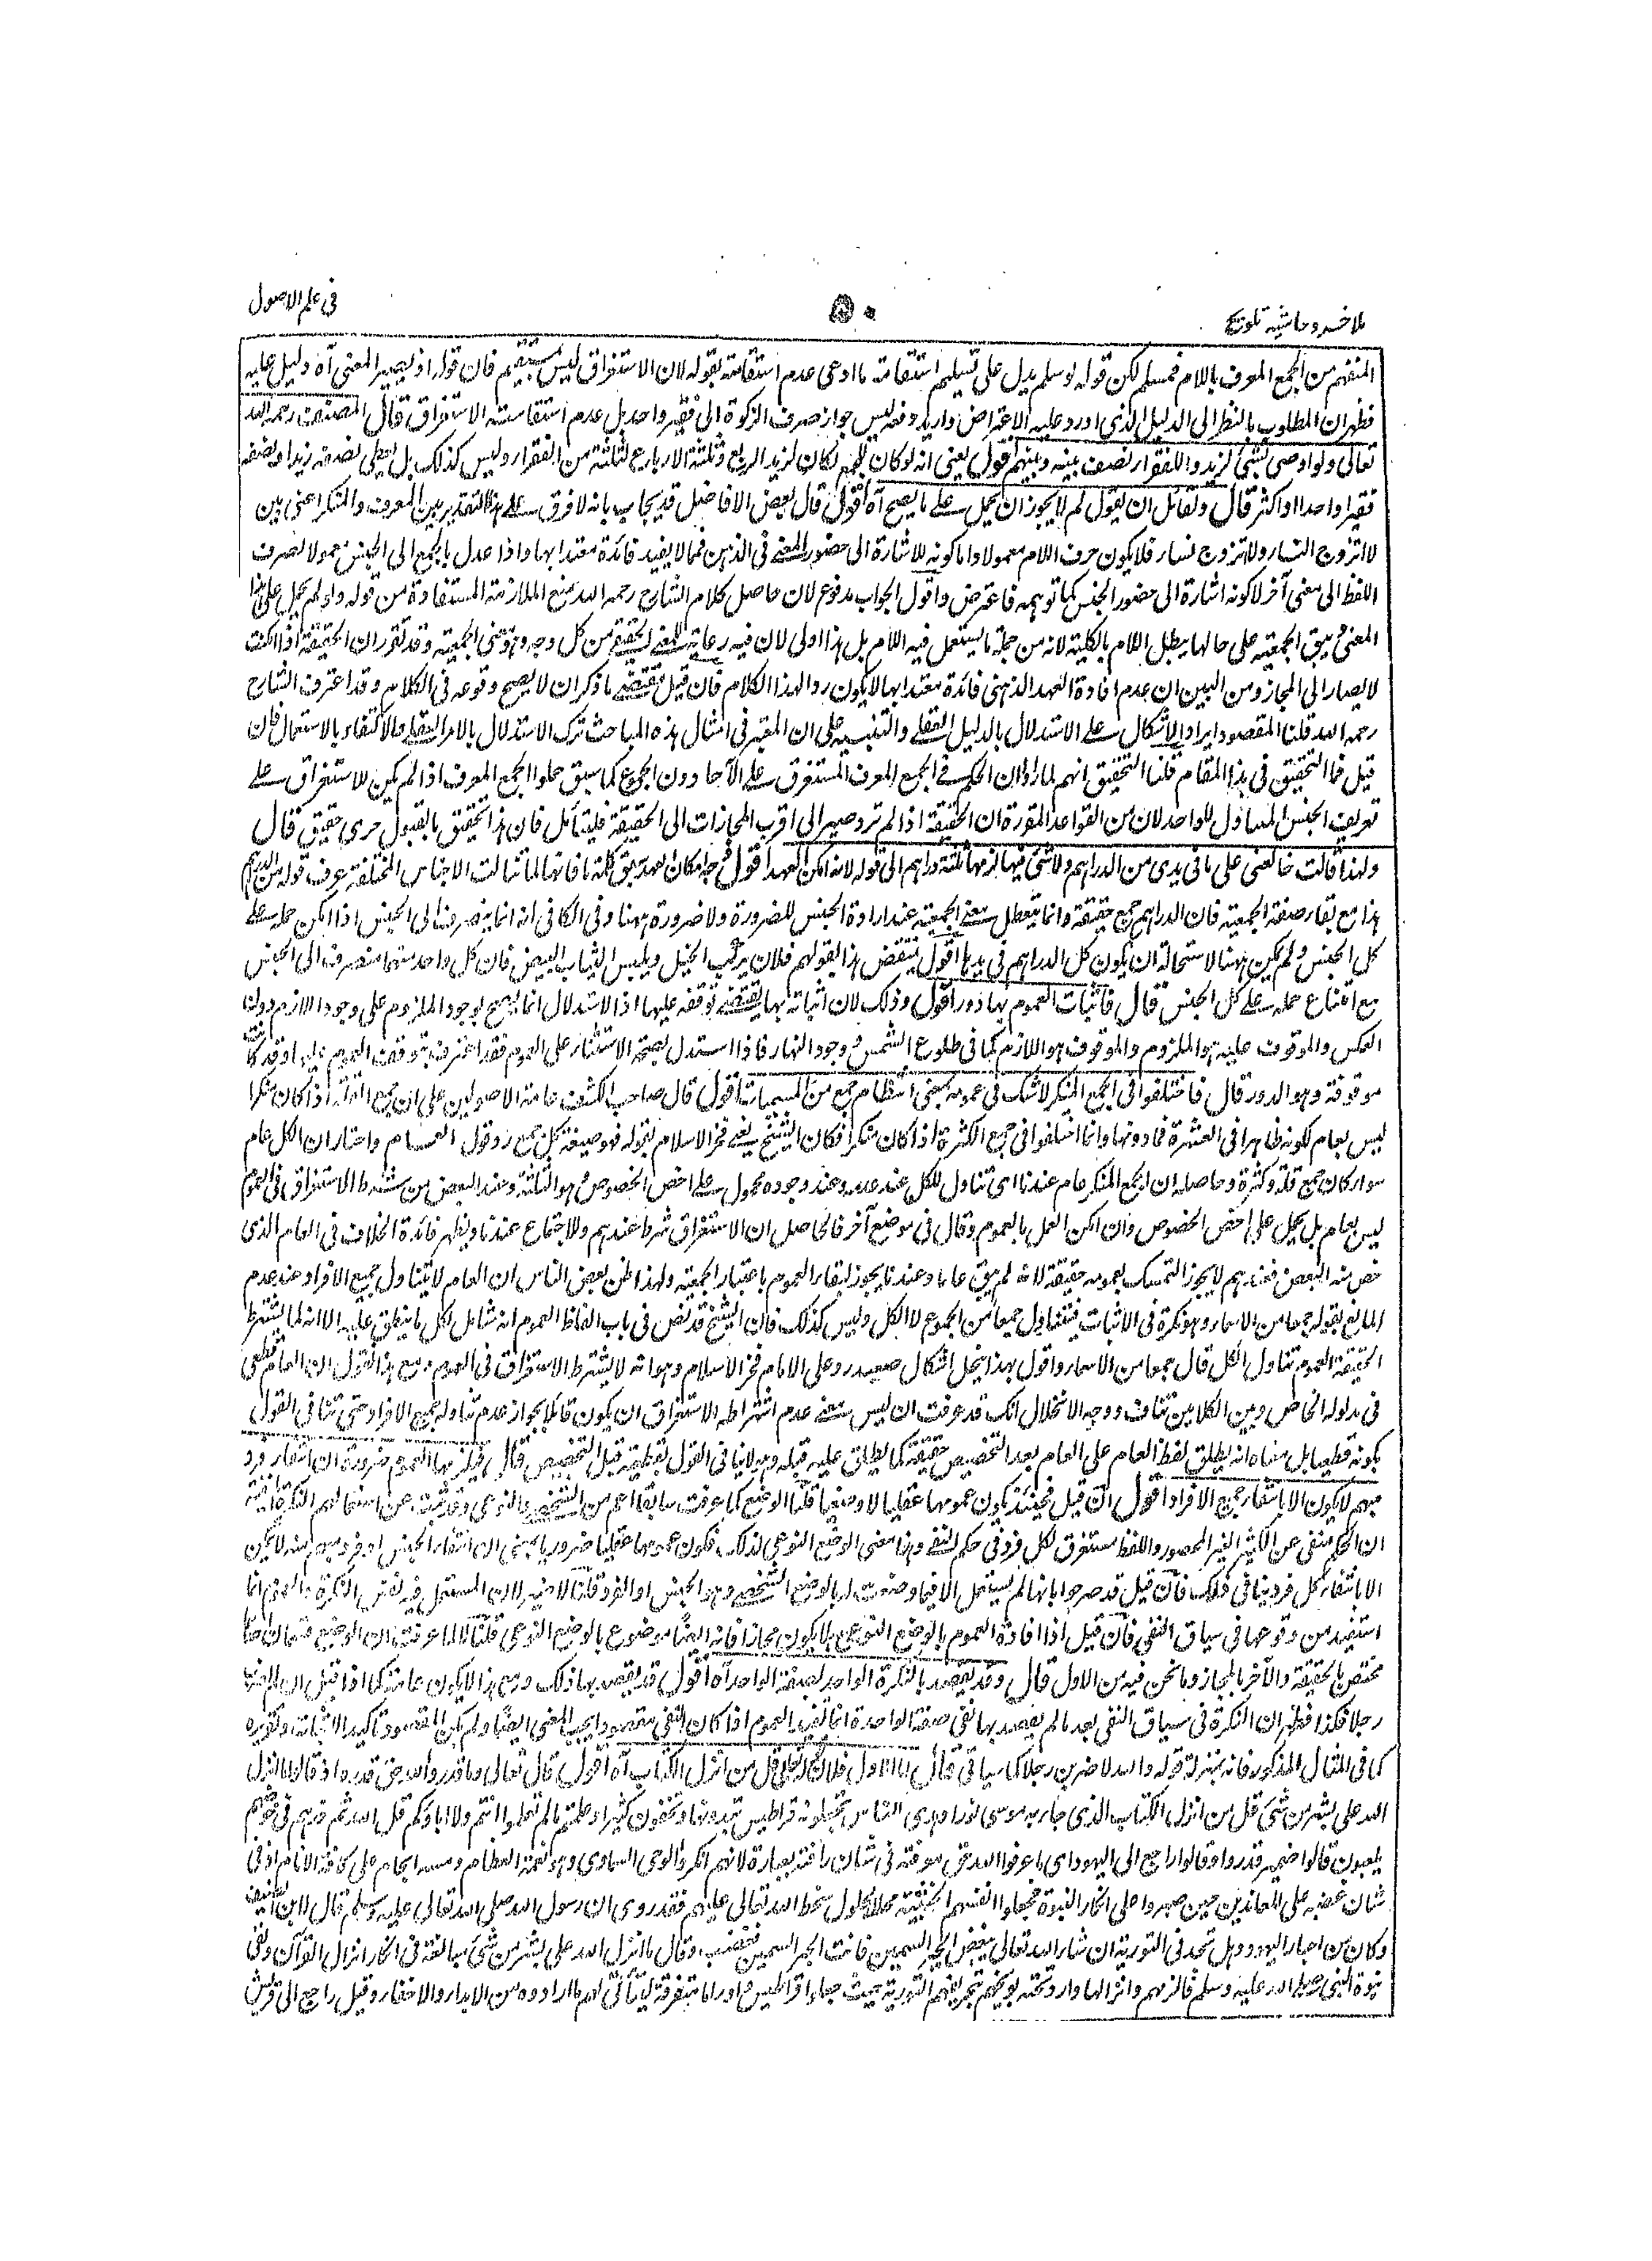 ملا خسرو حاشیه تلویح
۵۰
فی علم الاصول
المنفهم من الجمع المعرف باللام فمسلم لکن قوله لو سلم یدل علی تسلیم استقامة ما ادعی عدم استقامته بقوله لان الاستغراق لیس بمستقیم فان قوله اذ یصیر المعنی آه دلیل علیه
فظهر ان المطلوب بالنظر الی الدلیل الذی اورد علیه الاعتراض وارید دفعه لیس جواز صرف الزکوة الی فقیر واحد بل عدم استقامته الاستغراق قال المصنف رحمه الله
تعالی ولو اوصی بشئ لزید وللفقراء نصف بینه وبینهم اقول یعنی انه لو کان للجمع لکان لزید الربع وثلثة الارباع لثلثة من الفقراء ولیس کذلک بل یعطی نصفه زیدا ونصفه
فقیرا واحدا او اکثر قال ولقائل ان یقول لم لا یجوز ان یحمل علی ما یصح آه اقول قال بعض الافاضل قد یجاب بانه لا فرق علی هذا التقدیر بین المعرف والمنکر اعنی بین
لا اتزوج النساء ولا اتزوج نساء فلا یکون حرف اللام معمولا واما کونه للاشارة الی حضور المعنی فی الذهن فمما لا یفید فائدة معتدا بها واذا عدل بالجمع الی الجنس معمولا لصرف
اللفظ الی معنی آخر لا کونه اشارة الی حضور الجنس کما توهمه فاعترض واقول الجواب مدفوع لان حاصل کلام الشارح رحمه الله منع الملازمة المستفادة من قوله ولو لم یحمل علی هذا
المعنی ویبق الجمعیة علی حالها یبطل اللام بالکلیة لانه من جملة ما یستعمل فیه اللام بل هذا اولی لان فیه رعایة للمعنی الحقیقی من کل وجه وهو معنی الجمعیة وقد تقرر ان الحقیقة اذا امکنت
لا یصار الی المجاز ومن البین ان عدم افادة العهد الذهنی فائدة معتدا بها لا یکون ردا لهذا الکلام فان قیل مقتضی ما ذکر ان لا یصح وقوعه فی الکلام وقد اعترف الشارح
رحمه الله قلنا المقصود ایراد الاشکال علی الاستدلال بالدلیل العقلی والتنبیه علی ان المعتبر فی امثال هذه المباحث ترک الاستدلال بالامر العقلی والاکتفاء بالاستعمال فان
قیل فما التحقیق فی هذا المقام قلنا التحقیق انهم لما راوا ان الحکم فی الجمع المعرف المستغرق علی الآحاد دون المجموع کما سبق حملوا الجمع المعرف اذا لم یکن للاستغراق علی
تعریف الجنس المتناول للواحد لان من القواعد المقررة ان الحقیقة اذا لم ترد صیر الی اقرب المجازات الی الحقیقة فلیتامل فان هذا تحقیق بالقبول حری حقیق قال
ولهذا قالت خالعنی علی ما فی یدی من الدراهم ولا شئ فیها لزمها ثلثة دراهم الی قوله لانه امکن العهد اقول وجه امکان العهد سبق کلمة ما فانها لما تناولت الاجناس المختلفة عرف قوله من الدراهم
هذا مع بقاء صفة الجمعیة فان الدراهم جمع حقیقة وانما یتعطل معنی الجمعیة عند ارادة الجنس للضرورة ولا ضرورة ههنا وفی الکافی انه انما ینصرف الی الجنس اذا امکن حمله علی
کل الجنس ولم یمکن ههنا لاستحالة ان یکون کل الدراهم فی یدها اقول ینتقض هذا بقولهم فلان یرکب الخیل ویلبس الثیاب البیض فان کل واحد منهما منصرف الی الجنس
مع امتناع حمله علی کل الجنس قال فاثبات العموم بها دور اقول وذلک لان اثباته بها یقتضی توقفه علیها اذ الاستدلال انما یصح بوجود الملزوم علی وجود اللازم دون
العکس والموقوف علیه هو الملزوم والموقوف هو اللازم کما فی طلوع الشمس ووجود النهار فاذا استدل بصحة الاستثناء علی العموم فقد اعترف بتوقف العموم علیها وقد کانت
موقوفة وهو الدور قال فاختلفوا فی الجمع المنکر لا شک فی عمومه بمعنی انتظام جمع من المسمیات اقول قال صاحب الکشف عامة الاصولیین علی ان جمع القلة اذا کان منکرا
لیس بعام لکونه ظاهرا فی العشرة فما دونها وانما اختلفوا فی جمع الکثرة اذا کان منکرا فکان الشیخ یعنی فخر الاسلام بقوله فهو صیغة کل جمع رد قول العام واختار ان الکل عام
سواء کان جمع قلة وکثرة وحاصله ان الجمع المنکر عام عندنا ای تناول للکل عند عدم وعند وجوده محمول علی اخص الخصوص وهو الثلثة وعند البعض من شرط الاستغراق فی العموم
لیس بعام بل یحمل علی اخص الخصوص وان امکن العمل بالعموم وقال فی موضع آخر فالحاصل ان الاستغراق شرط عندهم والاجتماع عندنا ویظهر فائدة الخلاف فی العام الذی
خص منه البعض فعندهم لا یجوز التمسک بعمومه حقیقة لانه لم یبق عاما وعندنا یجوز لبقاء العموم باعتبار الجمعیة ولهذا ظن بعض الناس ان العام لا یتناول جمیع الافراد عند عدم
المانع بقوله جمعا من الاسماء وهو نکرة فی الاثبات فیتناول جمعا من الجموع لا الکل ولیس کذلک فان الشیخ قد نص فی باب الفاظ العموم انه شامل لکل ما ینطلق علیه الا انه لما لم یشترط
لحقیقة العموم تناول الکل قال جمعا من الاسماء واقول بهذا ینحل اشکال صعب یرد علی الامام فخر الاسلام وهو انه لا یشترط الاستغراق فی العموم ومع هذا القول ان العام قطعی
فی مدلوله الخاص وبین الکلامین تناف ووجه الانحلال انک قد عرفت ان لیس معنی عدم اشتراطه الاستغراق ان یکون قائلا بجواز عدم تناوله جمیع الافراد حتی تنافی القول
بکونه قطعیا بل معناه انه یطلق لفظ العام علی العام بعد التخصیص حقیقة کما یطلق علیه قبله وهو لا ینافی القول بقطعیته قبل التخصیص قال فیلزمها العموم ضرورة ان انتفاء فرد
مبهم لا یکون الا بانتفاء جمیع الافراد اقول فان قیل فحینئذ یکون عمومها عقلیا لا وضعیا قلنا الوضع کما عرفت سابقا اعم من الشخصی والنوعی وقد ثبت من استعمالهم النکرة المنفیة
ان الحکم منفی عن الکثیر الغیر المحصور واللفظ مستغرق لکل فرد فی حکم النفی وهذا معنی الوضع النوعی لذلک فکون عمومها عقلیا ضروریا بمعنی ان انتفاء الجنس او فرد مبهم منه لا یمکن
الا بانتفاء کل فرد ینافی ذلک فان قیل قد صرحوا بانها لم یستعمل الا فیما وضعت له بالوضع الشخصی وهو الجنس او الفرد قلنا لا ضیر لان المستعمل فیه نفس النکرة والعموم انما
استفید من وقوعها فی سیاق النفی فان قیل اذا افادة العموم بالوضع النوعی بلا یکون مجازا فانه ایضا موضوع بالوضع النوعی قلنا لا لما عرفت ان الوضع قسمان
مختص بالحقیقة والآخر بالمجاز وما نحن فیه من الاول قال وقد یقصد بالنکرة الواحد بصفة الواحد آه اقول قد یقصد بها ذلک ومع هذا لا یکون عامة کما اذا قیل
رجلا فکذا فظهر ان النکرة فی سیاق النفی بعد ما لم یقصد بها نفی صفة الواحدة انما تفید العموم اذا کان النفی مقصودا بحسب المعنی ایضا ولم یکن المقصود تاکید الاثبات وتقریره
کما فی المثال المذکور فانه بمنزلة قوله والله لاضربن رجلا کما سیاتی قال اما الاول فلان قوله تعالی قل من انزل الکتاب آه اقول قال تعالی وما قدروا الله حق قدره اذ قالوا ما انزل
الله علی بشر من شئ قل من انزل الکتاب الذی جاء به موسی نورا وهدی للناس تجعلونه قراطیس تبدونها وتخفون کثیرا وعلمتم ما لم تعلموا انتم ولا اباؤکم قل الله ثم ذرهم فی خوضهم
یلعبون قالوا ضمیر قدروا وقالوا راجع الی الیهود ای ما عرفوا الله حق معرفته فی شان رافته بعباده لانهم انکروا الوحی السماوی وهو نعمته العظام ومنته الجسام علی کافة الانام او فی
شان غضبه علی المعاندین حین صبروا علی انکار النبوة فجعلوا انفسهم الخبیثة محلا لحلول سخط الله تعالی علیهم فقد روی ان رسول الله صلی الله تعالی علیه وسلم قال لابن الضیف
وکان من احبار الیهود وهل تجد فی التوریة ان الله تعالی یبغض الحبر السمین فانت الحبر السمین فغضب وقال ما انزل الله علی بشر من شئ مبالغة فی انکار انزال القرآن ونفی
نبوة النبی صلی الله علیه وسلم فالزمهم وانزال التوراة وتحته توبیخهم بتحریفهم التوریة حیث جعلوا قراطیس واوراقا متفرقة لیتاتی لهم ما ارادوه من الابداء والاخفاء وقیل راجع الی قریش